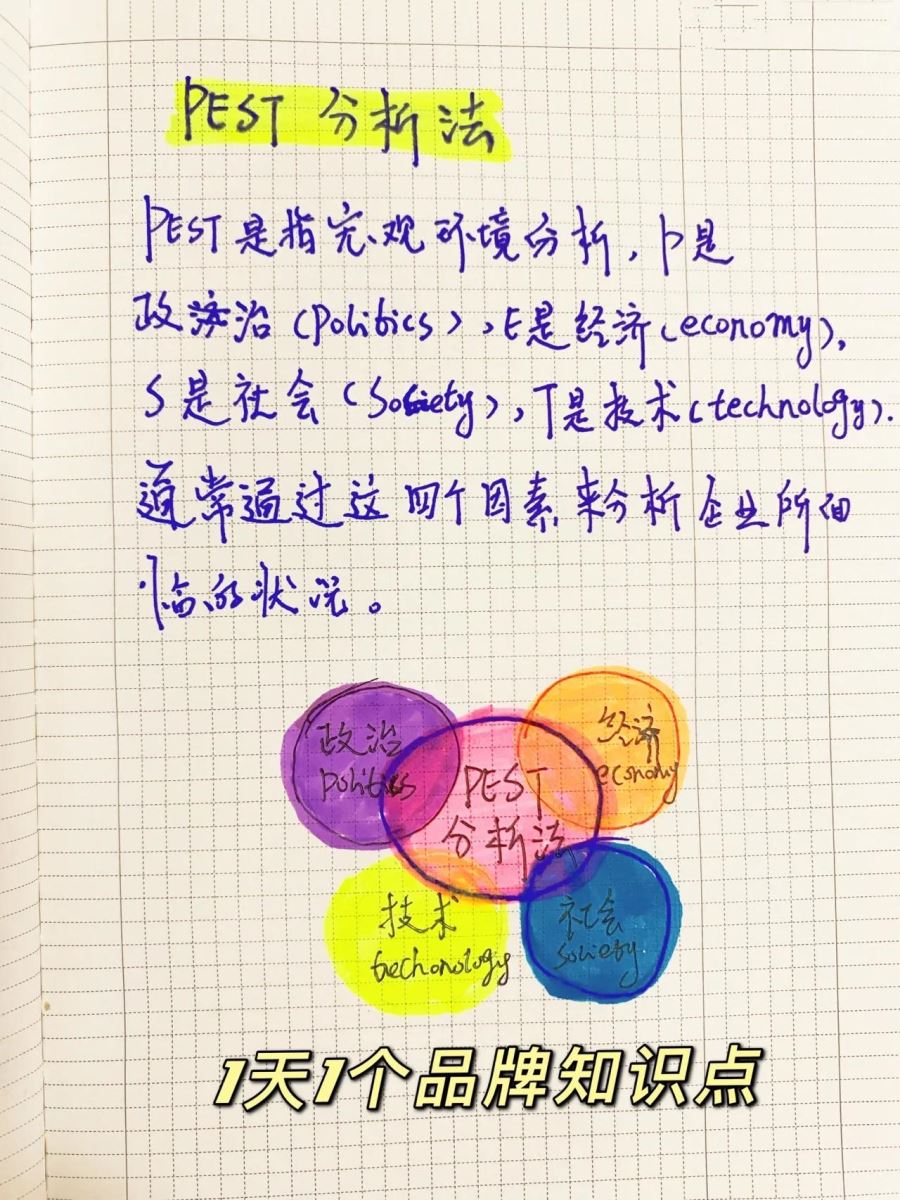 PEST 分析法
PEST是指宏观环境分析，p是
政治（politics），E是经济（economy），
S是社会（Society），T是技术（technology）.
通常通过这四个因素来分析企业所面
临的状况。
政治
politics
经济
economy
PEST
分析法
技术
techonology
社会
society
1天1个品牌知识点